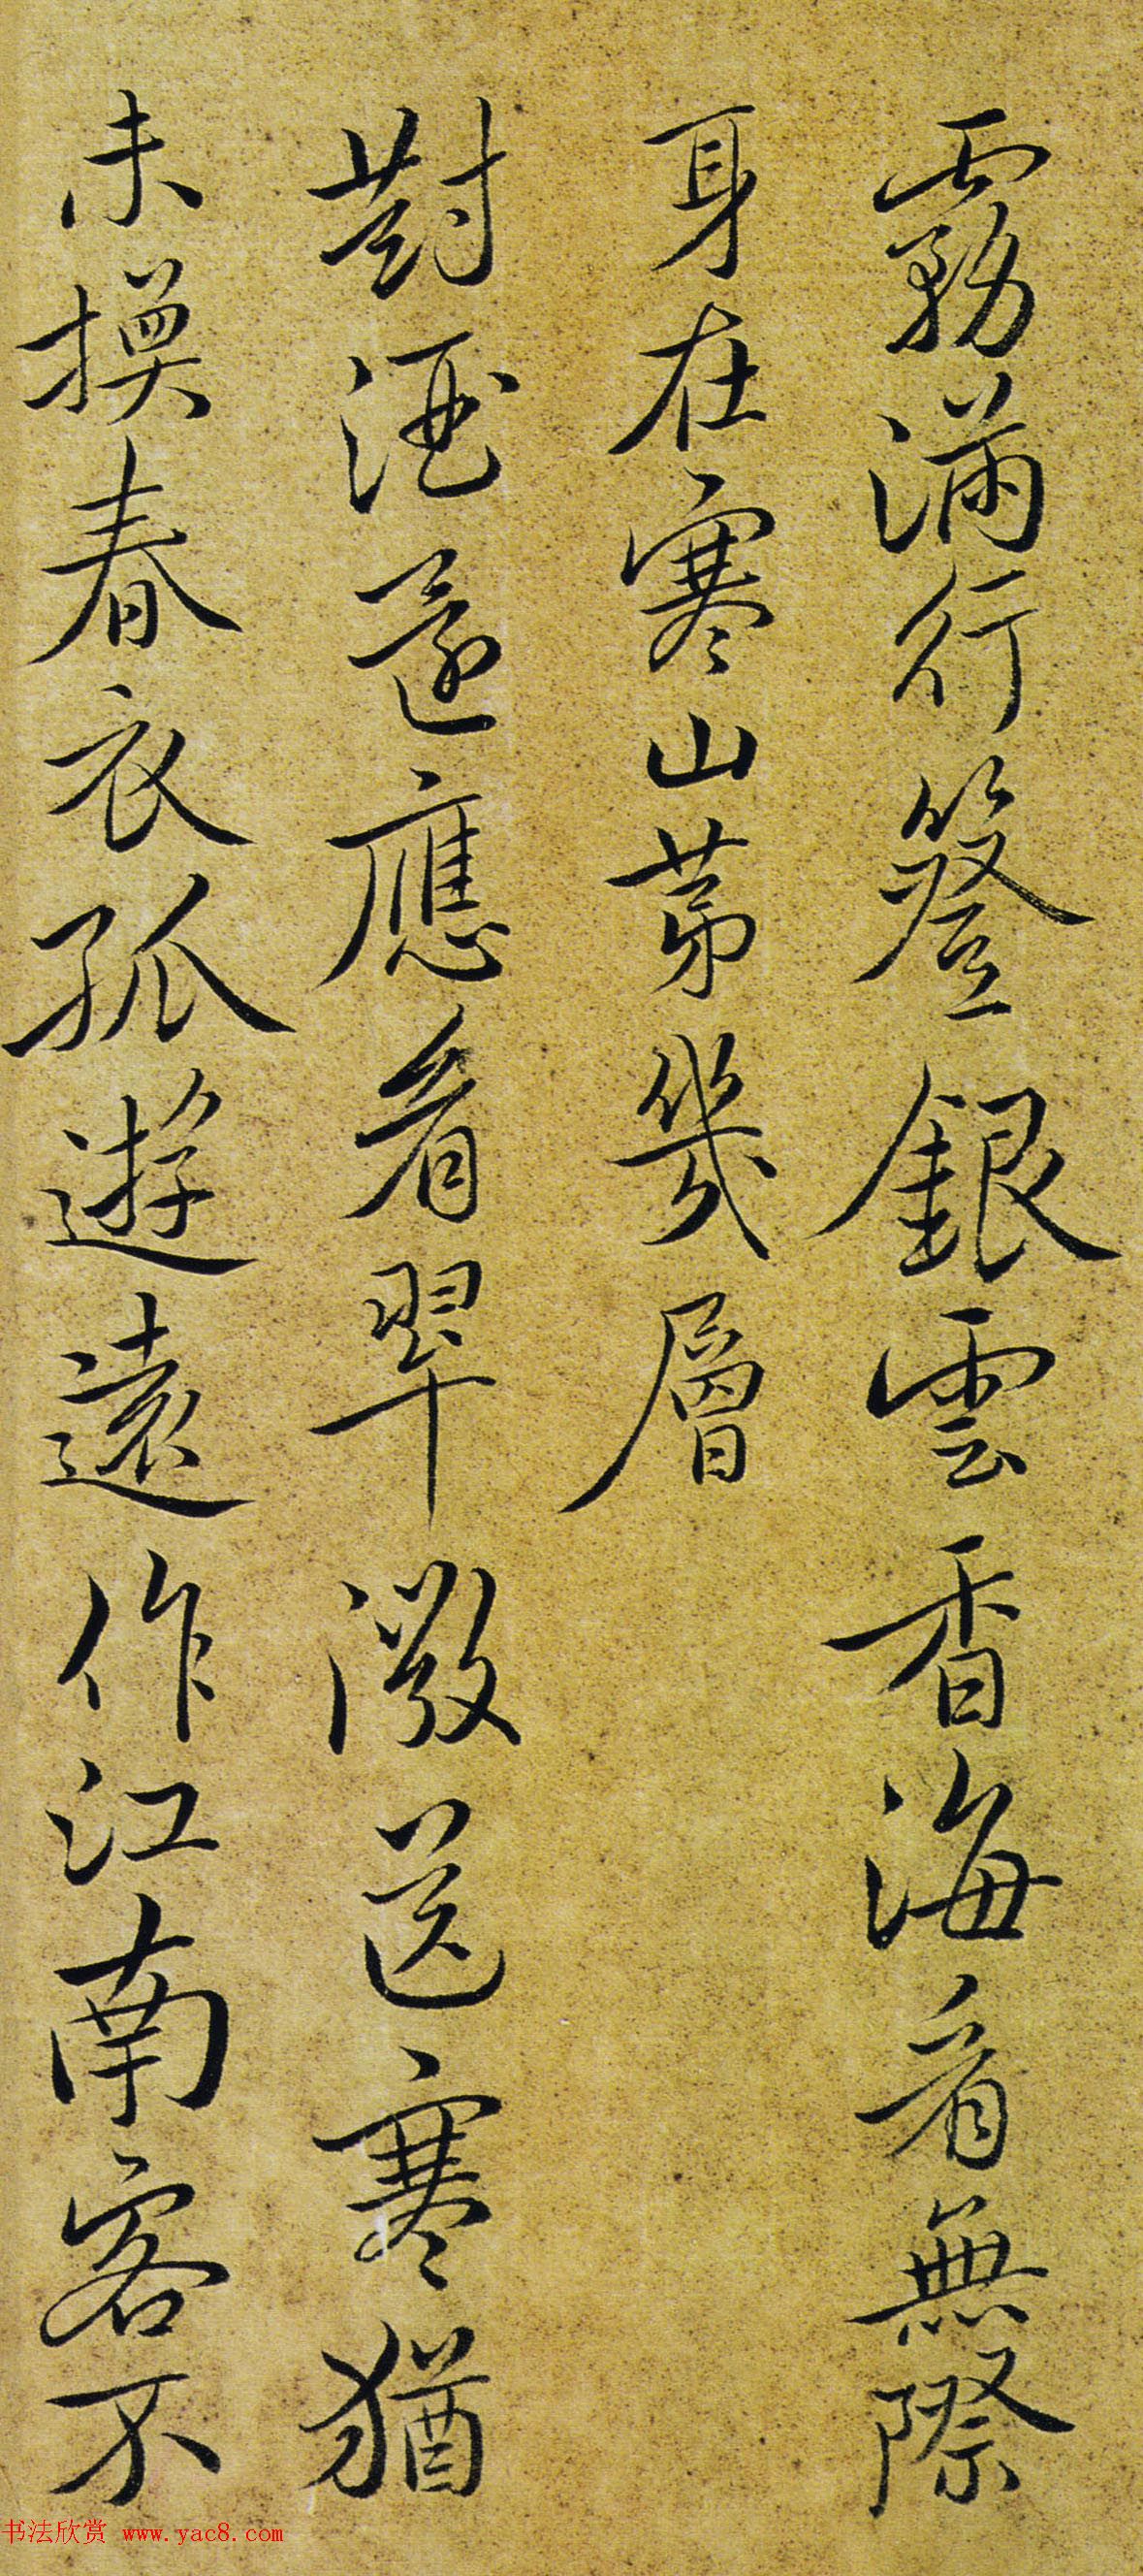 霧滿行簦銀雲香海看無際
身在寒山第幾層
對酒還應看翠微送寒猶
未換春衣孤遊遠作江南客不
书法欣赏 www.yac8.com